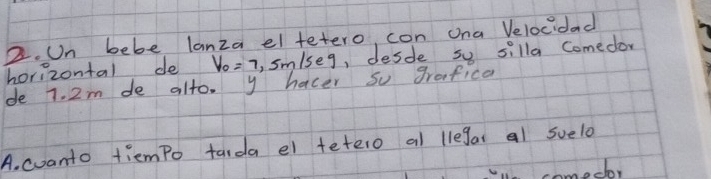 2. Un bebe lanza el tetero con una Velocidad
horizontal de Vo = 7,5m/seg, desde su silla comedor
de 1.2m de alto. y hacer su grafica
A. cuanto tiempo tarda el tetero al llegar al suelo
comedor